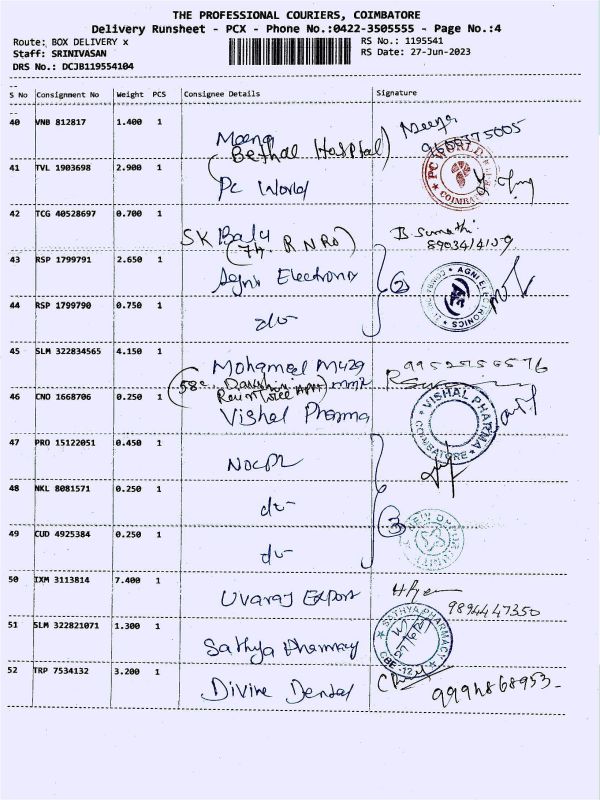 THE PROFESSIONAL COURIERS, COIMBATORE
Delivery Runsheet - PCX - Phone No.:0422-3505555 - Page No.:4
Route: BOX DELIVERY x
RS No.: 1195541
Staff: SRINIVASAN
RS Date: 27-Jun-2023
DRS No.: DCJB119554104
S No Consignment No Weight PCS Consignee Details Signature
40 VNB 812817 1.400 1 Meena Meena
(Bethal Hospital)
41 TVL 1903698 2.900 1 Pc World PC WORLD
42 TCG 40528697 0.700 1 SK Balu B. Sumathi
(7h. R N Ro)
43 RSP 1799791 2.650 1 Agni Electronix 2 AGNI ELECTRONICS
44 RSP 1799790 0.750 1 do
45 SLM 322834565 4.150 1 Mohamed
46 CNO 1668706 0.250 1 Vishal Pharma VISHAL PHARMA COIMBATORE
47 PRO 15122051 0.450 1
48 NKL 8081571 0.250 1 do 3
49 CUD 4925384 0.250 1 do
50 IXM 3113814 7.400 1 Uvaraj Export 9894447350
51 SLM 322821071 1.300 1 Sathya Pharmacy SATHYA PHARMACY CBE-12
52 TRP 7534132 3.200 1 Divine Dental